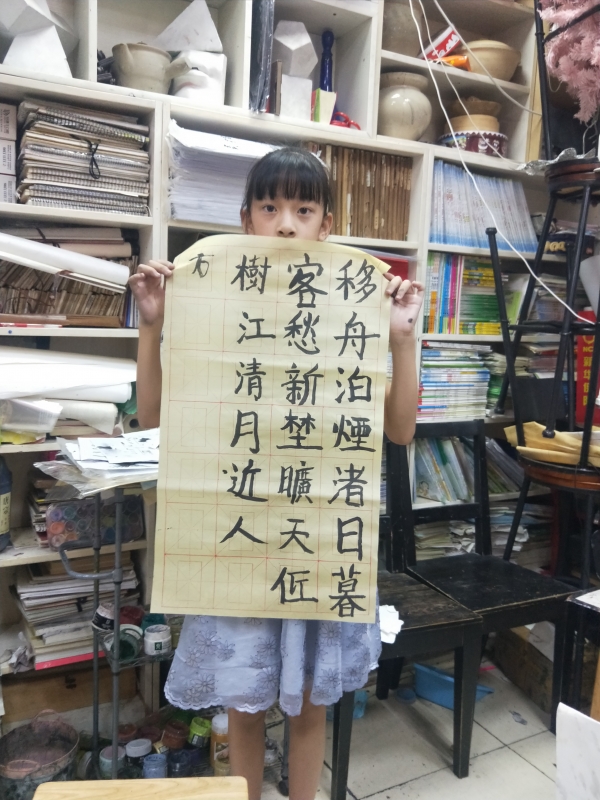 移舟泊煙渚日暮
客愁新埜曠天低
樹江清月近人
右